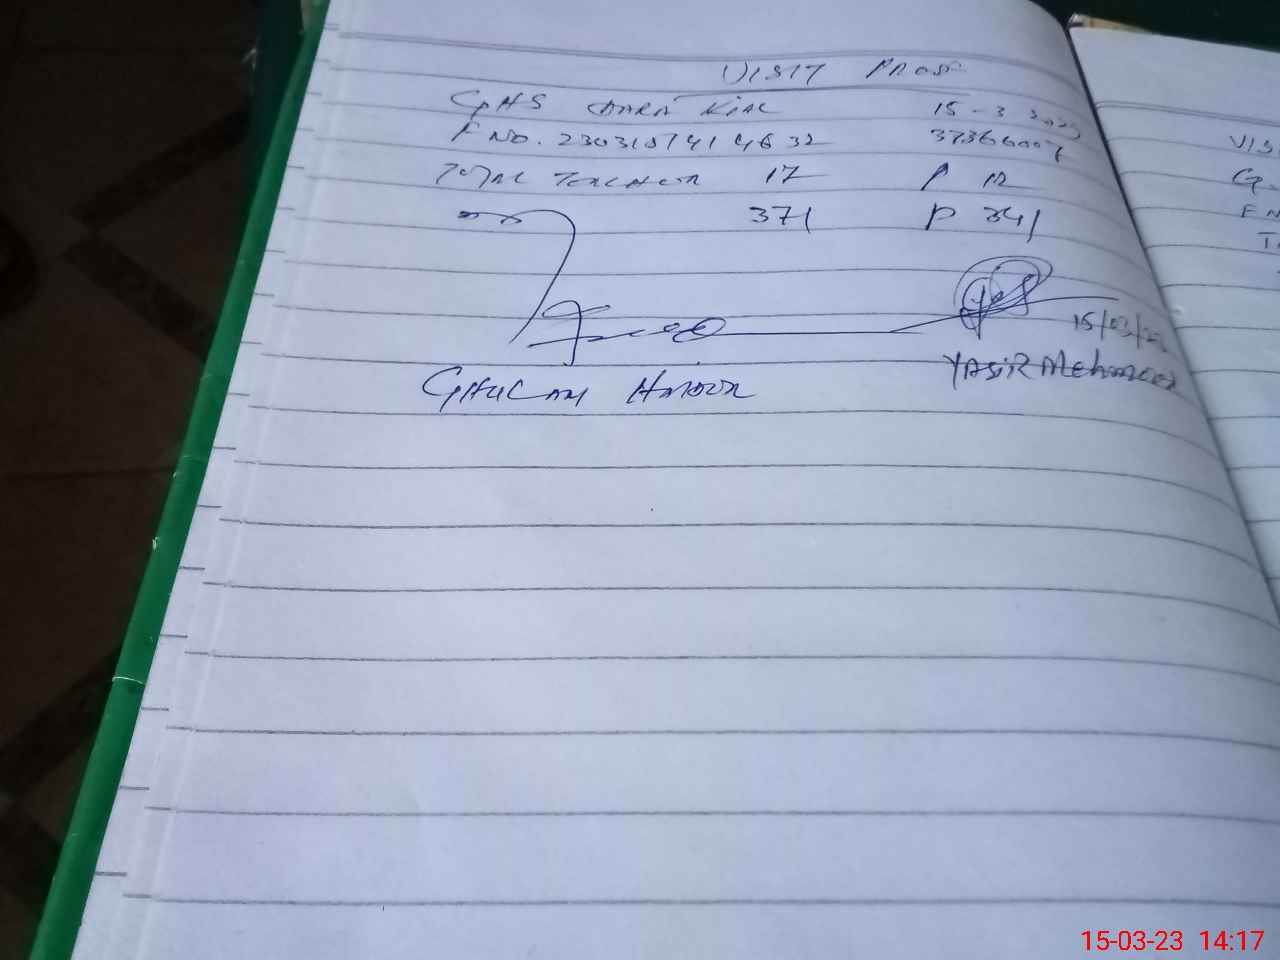 VISIT PROOF
GHS DHARA KIAL 15-3 2023
F NO. 2303151414632 37366007
TOTAL TEACHER 17 P 12
371 P 341
15/03/23
GHULAM HAIDER YASIR Mehmood
VIS
G
F N
T
15-03-23 14:17